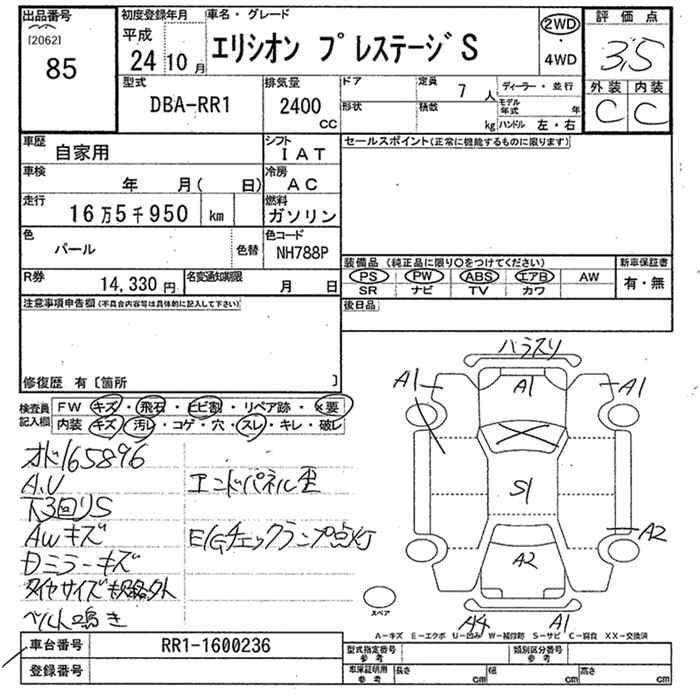 出品番号
[2062]
85
初度登録年月
平成
24 10 月
車名・グレード
エリシオン プレステージS
2WD
・
4WD
評価点
3.5
外装 内装
C C
型式
DBA-RR1
排気量
2400
CC
ドア
形状
定員
7 人
積数
kg
ディーラー・並行
モデル年式 年
ハンドル 左・右
車歴
自家用
シフト
IAT
セールスポイント(正常に機能するものに限ります)
車検
年 月( 日)
冷房
AC
走行
16万5千950 km
燃料
ガソリン
色
パール
色替
色コード
NH788P
装備品(純正品に限り○をつけてください)
PS PW ABS エアB AW
SR ナビ TV カワ
新車保証書
有・無
R券
14,330 円
名変通知期限
月 日
後日品
注意事項申告欄(不具合内容等は具体的に記入して下さい)
修復歴 有〔箇所 〕
検査員記入欄
FW キズ・飛石・ヒビ割・リペア跡・×要
内装 キズ・汚レ・コゲ・穴・スレ・キレ・破レ
オド165896
A.U
下3回りS
AWキズ
Dミラーキズ
タイヤサイズ規格外
ベルト鳴き
エンドパネル歪
E/Gチェックランプ点灯
バラスリ
A1
A1
A1
S1
A2
A2
A4
A1
スペア
A－キズ E－エクボ U－凹み W－補修跡 S－サビ C－腐食 XX－交換済
車台番号
RR1-1600236
登録番号
型式指定番号
参考
類別区分番号
参考
車庫証明用
参考
長さ cm
幅 cm
高さ cm